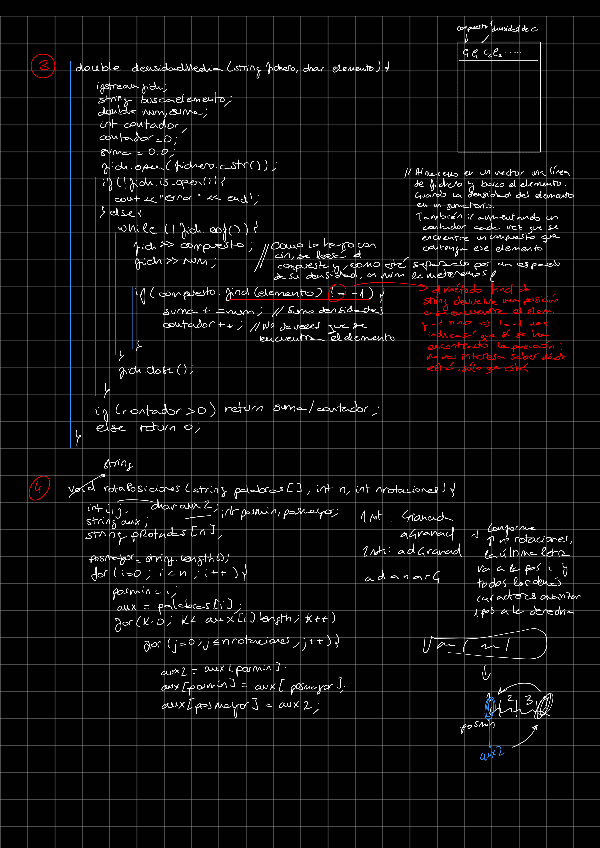 compuesto densidad de C
③ double densidadMedia (string fichero, char elemento) {
ifstream fich;
string buscaelemento;
double num, suma;
int contador;
contador = 0;
suma = 0.0;
fich.open(fichero.c_str());
if (!fich.is_open()) {
cout << "error" << endl;
} else {
while (!fich.eof()) {
fich >> compuesto;
fich >> num;
// Como lo hago con
cin, se leerá el
compuesto y, como está separado por un espacio
de su densidad, en num la meteremos
if (compuesto.find(elemento) != -1) {
suma += num; // Suma densidades
contador++; // Nº de veces que se
encuentra el elemento
}
}
fich.close();
}
if (contador > 0) return suma/contador;
else return 0;
}
// Almaceno en un vector una línea
de fichero y busco el elemento.
Guardo la densidad del elemento
en un sumatorio.
También iré aumentando un
contador cada vez que se
encuentre un compuesto que
contenga ese elemento
el método find de
string devuelve una posición
si encuentra el elem.
y -1 si no
encontrado la posición
no nos interesa saber dónde
está, sólo que esté
string
④ void rotaPosiciones (string palabras[], int n, int nrotaciones) {
int i, j; char aux2; int posmin, posmayor;
string aux;
string pRotadas[n];
posmayor = string.length();
for (i=0; i<n; i++) {
posmin = i;
aux = palabras[i];
for (k=0; k< aux[i].length; k++)
for (j=0; j≤nrotaciones, j++) {
aux2 = aux[posmin].
aux[posmin] = aux[posmayor].
aux[posmayor] = aux2;
1 int: Granada
aGranad
2 int: adGranad
adanarG
Conforme
nº rotaciones,
la última letra
va a la pos i y
todos los demás
caracteres avanzan
1 pos a la derecha
2 3
posmin
aux2